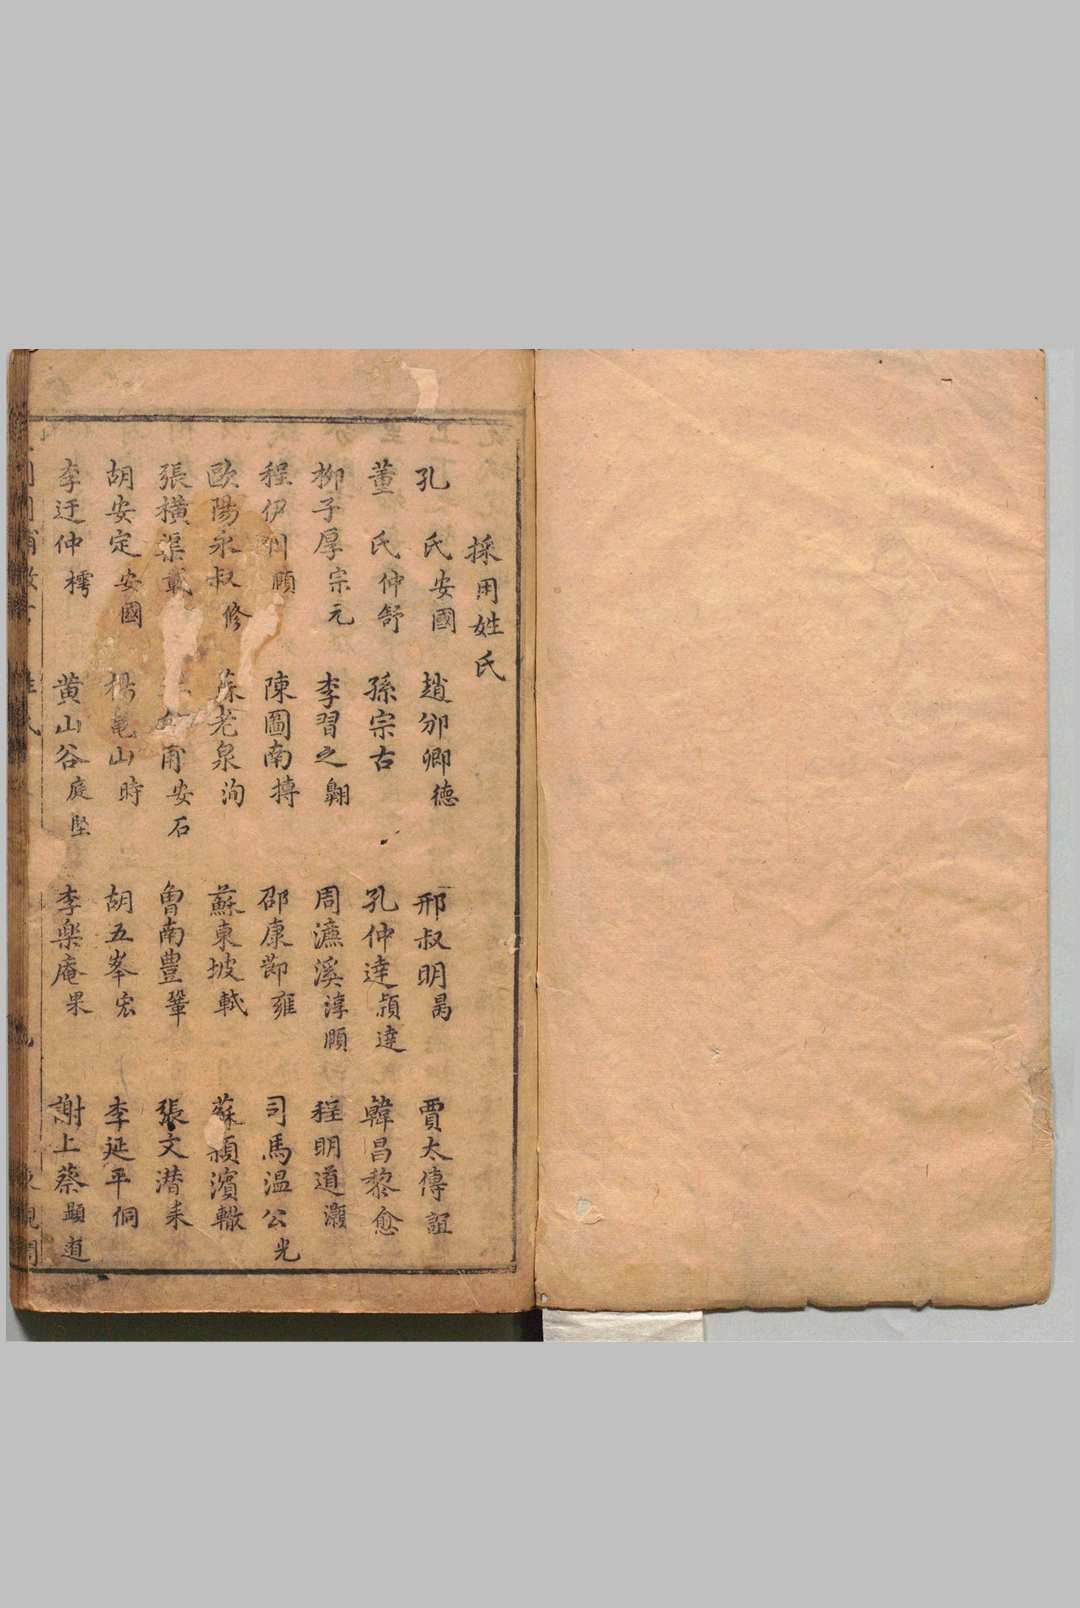 採用姓氏
孔氏安國 趙邠卿德 邢叔明昺 賈太傳誼
董氏仲舒 孫宗古 孔仲達頴達 韓昌黎愈
柳子厚宗元 李習之翱 周濂溪淳頤 程明道灝
程伊川頤 陳圖南摶 邵康節雍 司馬温公光
歐陽永叔修 蘇老泉洵 蘇東坡軾 蘇頴濱轍
張橫渠載 甫安石 曾南豊鞏 張文潜耒
胡安定安國 楊龜山時 胡五峯宏 李延平侗
李迂仲樗 黄山谷庭堅 李樂庵果 謝上蔡顯道